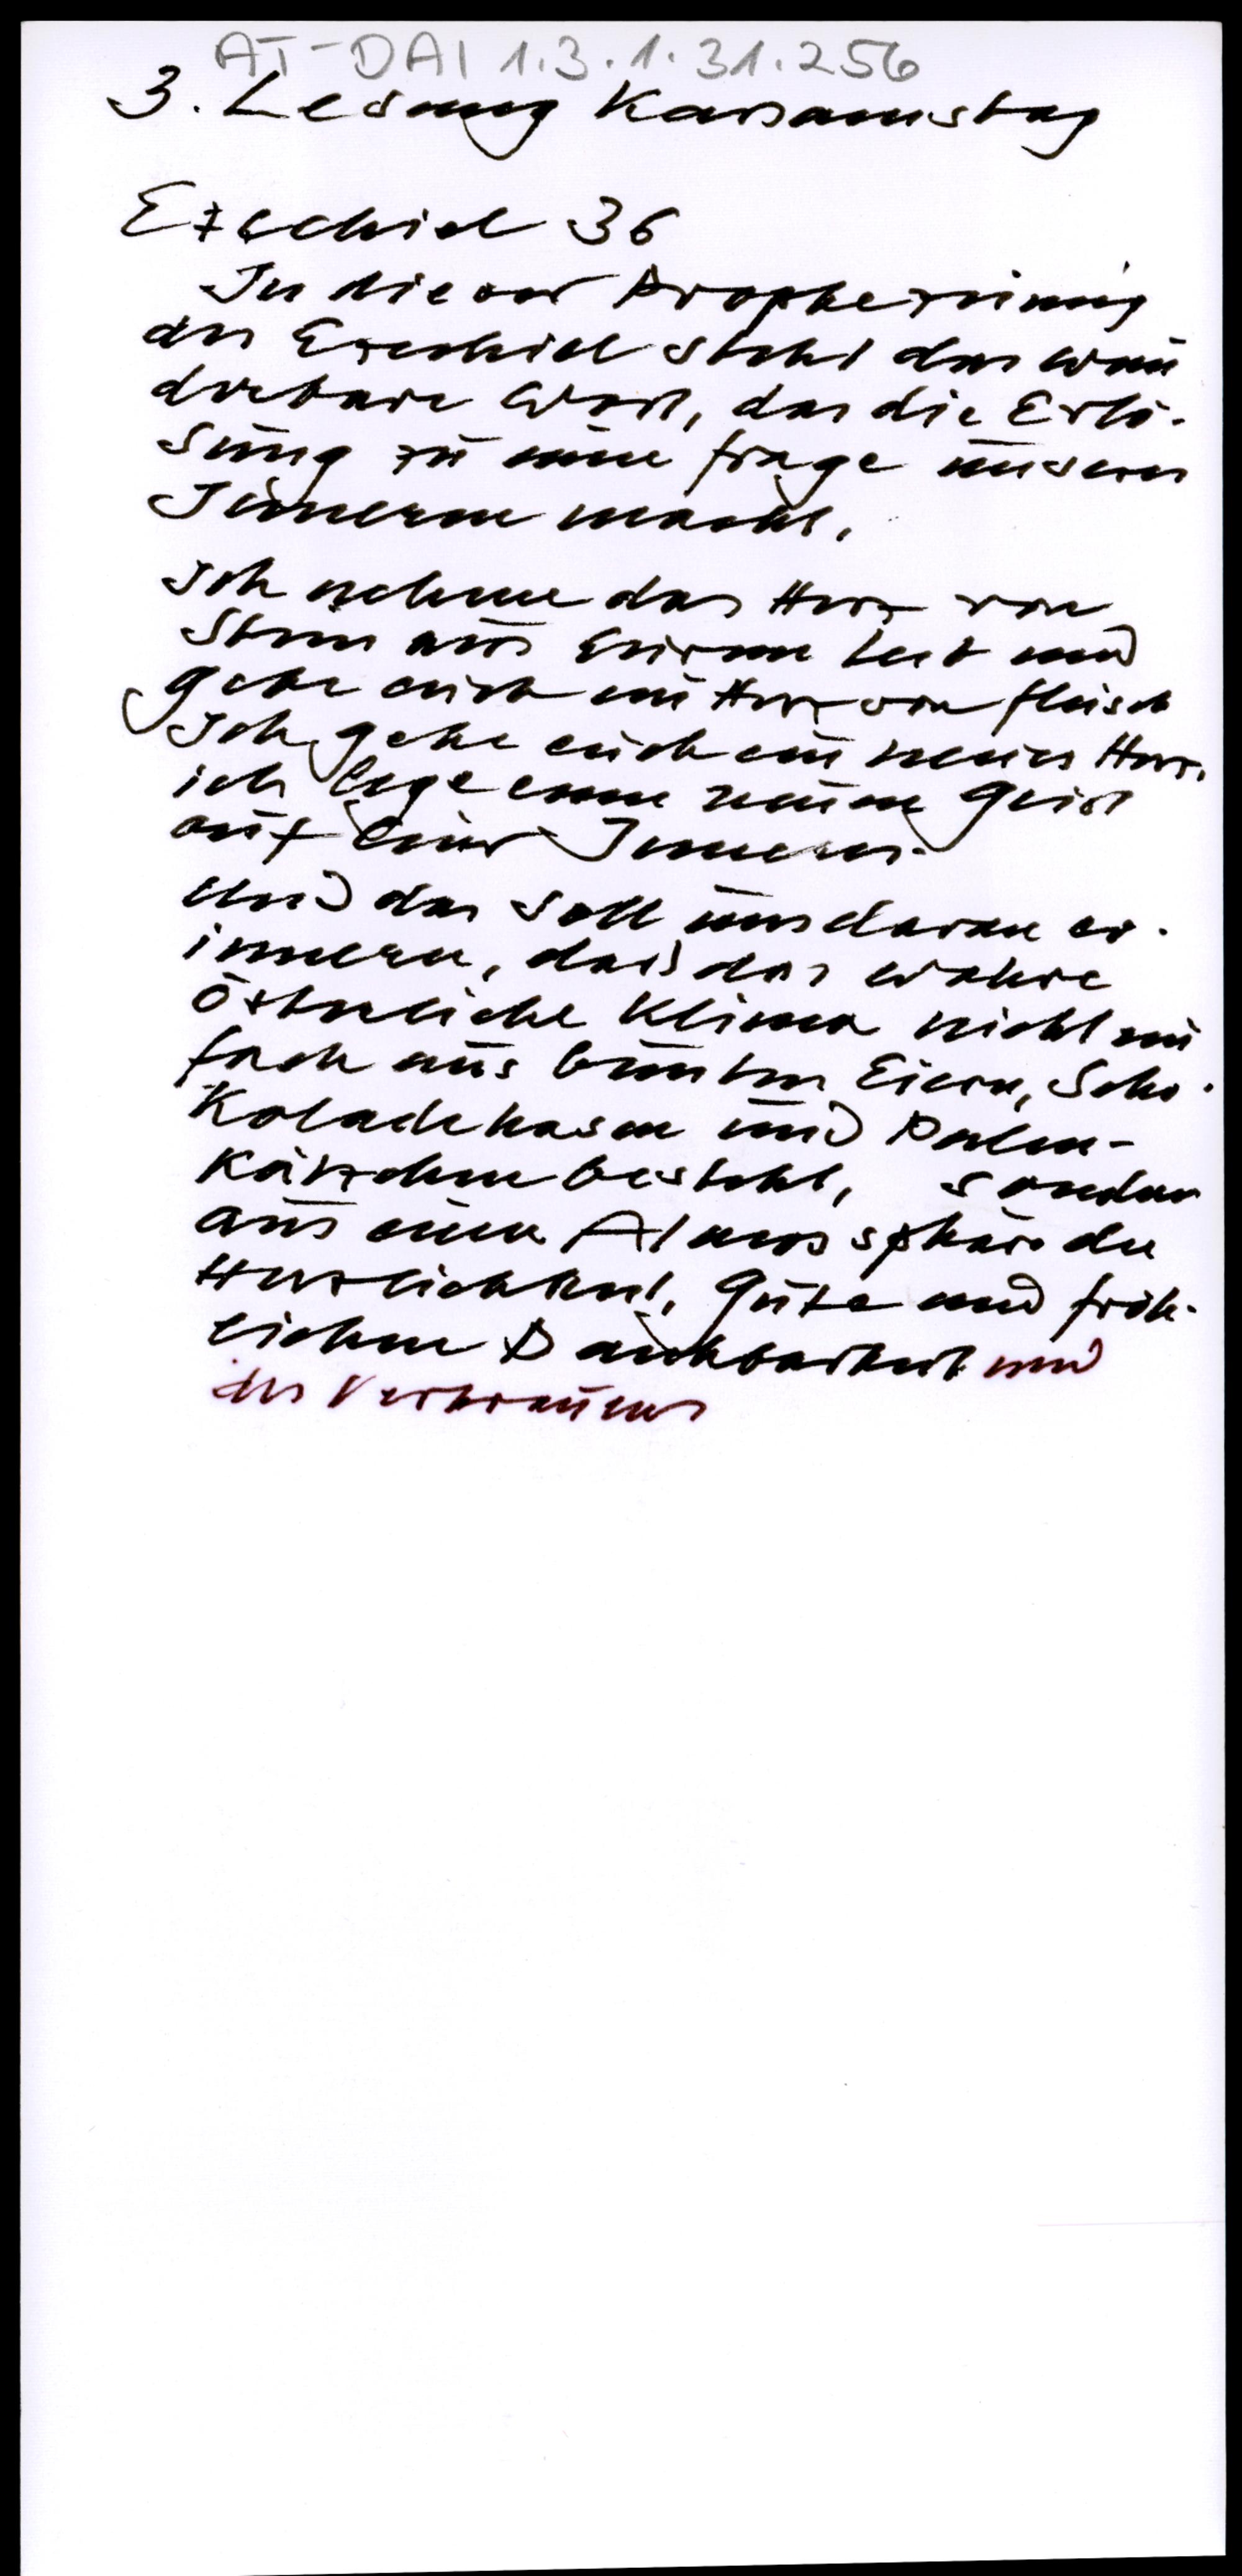 AT-DAI 1.3.1.31.256
3. Lesung Karsamstag
Ezechiel 36
In dieser Prophezeiung
des Ezechiel steht das wun
derbare Wort, das die Erlö-
sung zu einer Frage unseres
Inneren macht.
Ich nehme das Herz von
Stein aus Eurem Leib und
gebe euch ein Herz von Fleisch
Ich gebe euch ein neues Herz,
ich lege einen neuen Geist
auf Euer Inneres.
Und das soll uns daran er-
innern, daß das wahre
österliche Klima nicht ein
fach aus bunten Eiern, Scho-
koladehasen und Palm-
kätzchen besteht, sondern
aus einer Atmossphäre der
Herzlichkeit, Güte und fröh-
lichen Dankbarkeit und
des Vertrauens